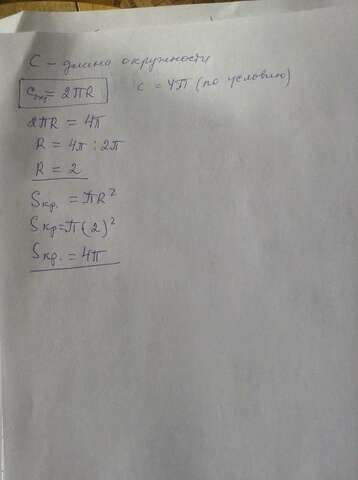 C - длина окружности
Cокр = 2πR C = 4π (по условию)
2πR = 4π
R = 4π : 2π
R = 2
Sкр. = πR²
Sкр = π(2)²
Sкр. = 4π